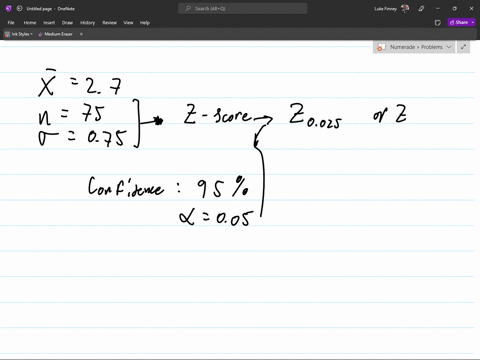 Untitled page - OneNote
Search (Alt+Q)
Luke Finney
File Home Insert Draw History Review View Help
Share
Ink Styles Medium Eraser
Numerade > Problems
X̄ = 2.7
n = 75
σ = 0.75
Z-score → Z0.025 or Z
Confidence : 95 %
α = 0.05